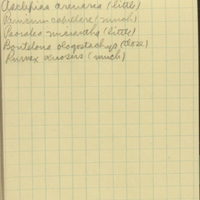 Asclepias arenaria (little)
Panicum capillare (much)
Psoralea micrantha (little)
Bouteloua oligostachya (dose)
Rumex venosus (much)